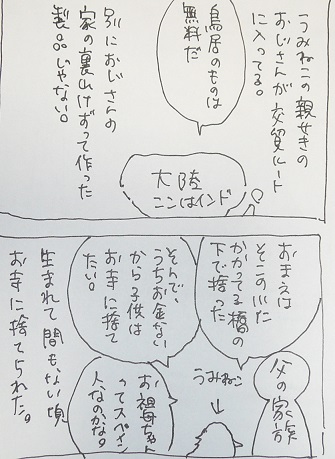 うみねこの親せきの
おじさんが交貿ルート
に入ってる。
鳥居のものは
無料だ
別におじさんの
家の裏山けずって作った
製品じゃない。
大陸
ここはインド
おまえは
そこの川に
かかってる橋の
下で捨った
そんで、
うちお金ない
から子供は
お寺に捨て
たい。
生まれて間も、ない頃
お寺に捨てられた。
父の家族
うみねこ
お祖母ちゃん
ってスペイン
人なのかな。